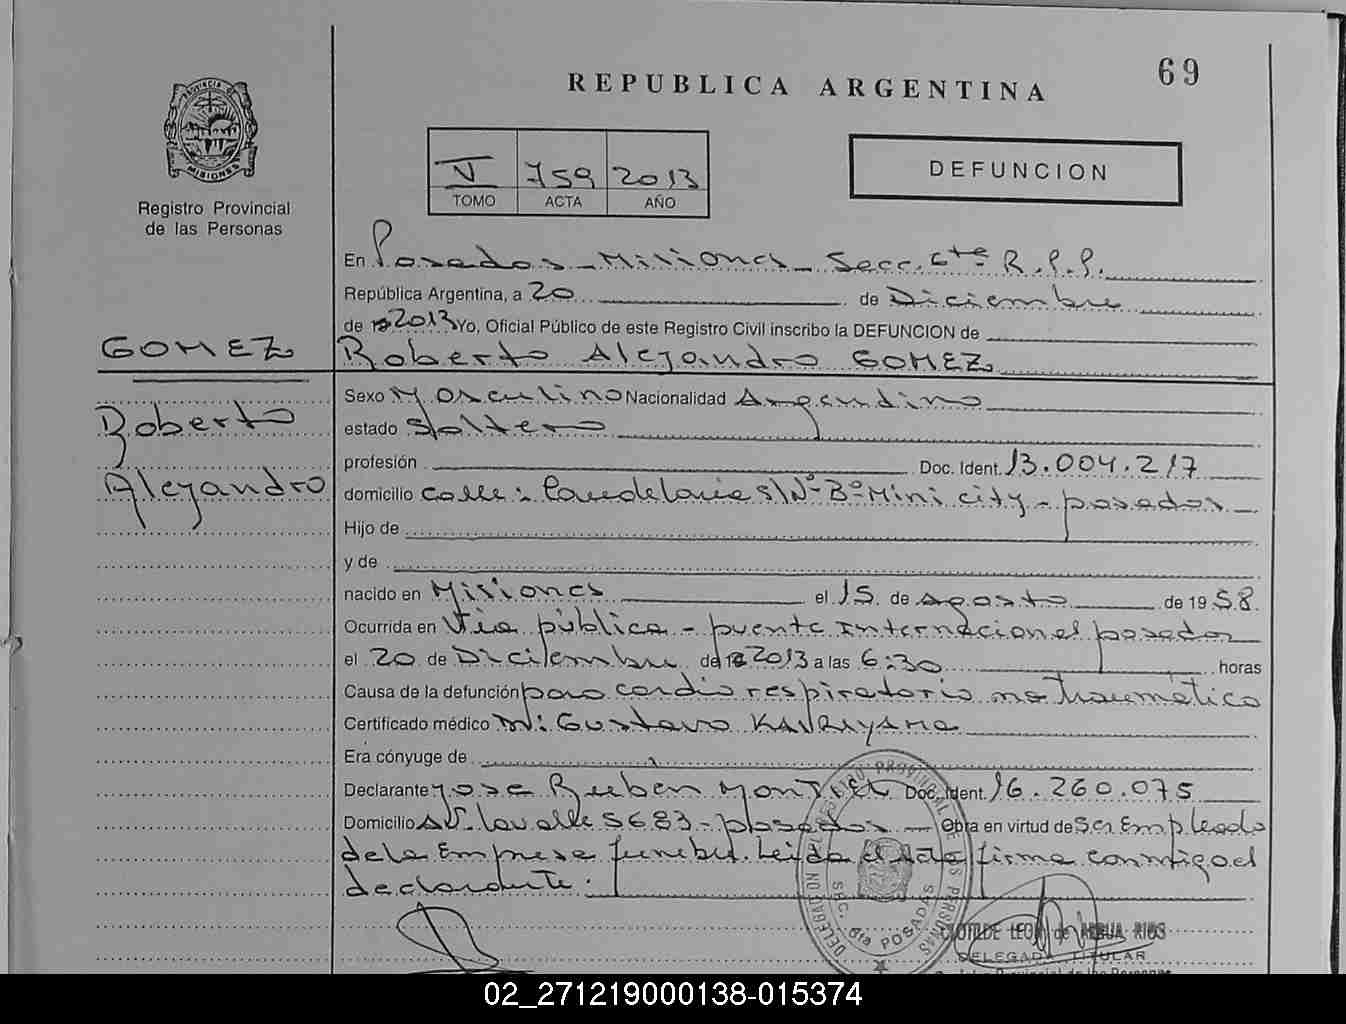 69
REPUBLICA ARGENTINA
PROVINCIA DE
MISIONES
Registro Provincial
de las Personas
V 759 2013
TOMO ACTA AÑO
DEFUNCION
En Posadas - Misiones - Secc. 6ta R.P.P.
República Argentina, a 20 de Diciembre
de 2013 Yo, Oficial Público de este Registro Civil inscribo la DEFUNCION de
GOMEZ Roberto Alejandro GOMEZ
Roberto
Alejandro
Sexo Masculino Nacionalidad Argentino
estado Soltero
profesión Doc. Ident. 13.004.217
domicilio calle: S/Nº Bº Mini city - posadas
Hijo de
y de
nacido en Misiones el 15 de agosto de 1958.
Ocurrida en Vía pública - puente Internacional posadas
el 20 de Diciembre de 2013 a las 6:30 horas
Causa de la defunción paro cardio respiratorio no traumático
Certificado médico Gustavo
Era cónyuge de
Declarante Jose Ruben Montiel Doc. Ident. 16.260.075
Domicilio AV. Lavalle 5683 - posadas - Obra en virtud de ser Empleado
de la Empresa funebre. Leida el Acta firma conmigo el
declarante.
SEC. 6ta POSADAS
CLOTILDE LEON de RIOS
DELEGADA TITULAR
02_271219000138-015374